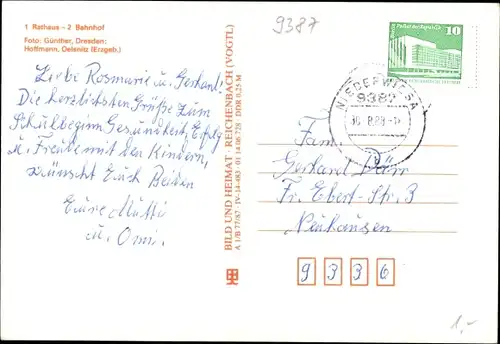 1 Rathaus – 2 Bahnhof
Foto: Günther, Dresden;
Hoffmann, Oelsnitz (Erzgeb.)
Liebe Rosmarie u. Gerhard!
Die herzlichsten Grüße zum
Schulbeginn Gesundheit, Erfolg
u. Freude mit den Kindern,
wünscht Euch Beiden
Eure Mutti
u. Omi.
BILD UND HEIMAT REICHENBACH (VOGTL)
A 1/B 77/87 IV-14-483 01 14 06 728 DDR 0,25 M
9387
10
DDR
NIEDERWIESA
9387
30. 8.89
Fam.
Gerhard
Fr. Ebert-Str. 3
Neuhausen
9336
1,-